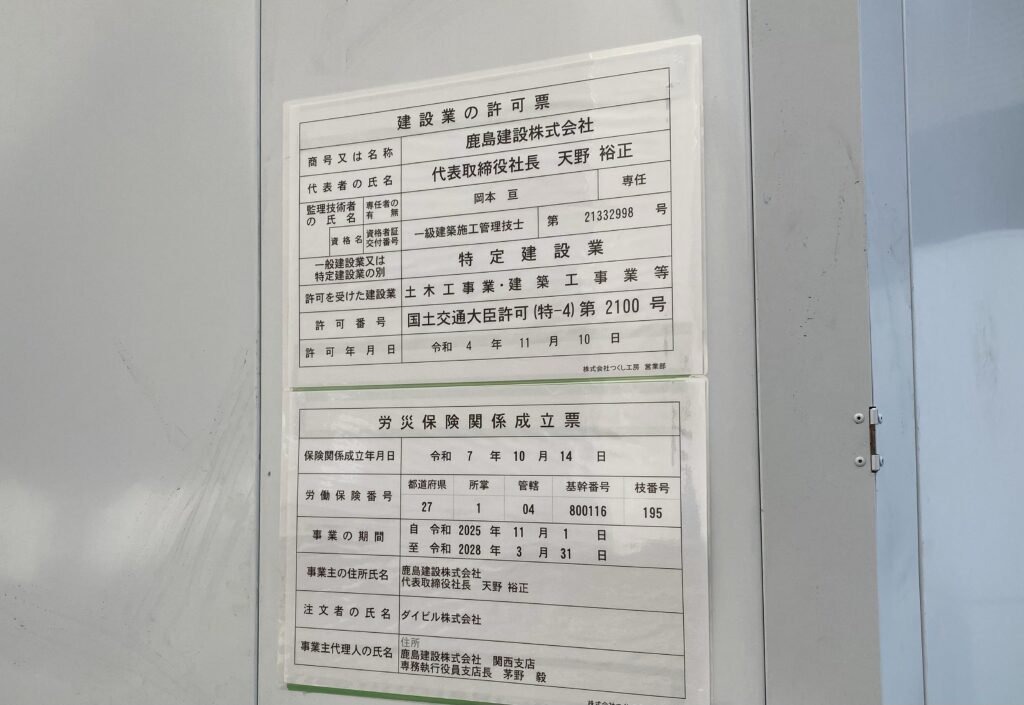 建設業の許可票
商号又は名称 鹿島建設株式会社
代表者の氏名 代表取締役社長 天野 裕正
監理技術者の氏名 専任者の有無 岡本 亘 専任
資格名 資格者証交付番号 一級建築施工管理技士 第 21332998 号
一般建設業又は特定建設業の別 特定建設業
許可を受けた建設業 土木工事業・建築工事業等
許可番号 国土交通大臣許可(特-4)第 2100 号
許可年月日 令和 4 年 11 月 10 日
株式会社つくし工房 営業部
労災保険関係成立票
保険関係成立年月日 令和 7 年 10 月 14 日
労働保険番号 都道府県 所掌 管轄 基幹番号 枝番号
27 1 04 800116 195
事業の期間 自 令和 2025 年 11 月 1 日
至 令和 2028 年 3 月 31 日
事業主の住所氏名 鹿島建設株式会社
代表取締役社長 天野 裕正
注文者の氏名 ダイビル株式会社
事業主代理人の氏名 住所
鹿島建設株式会社 関西支店
専務執行役員支店長 茅野 毅